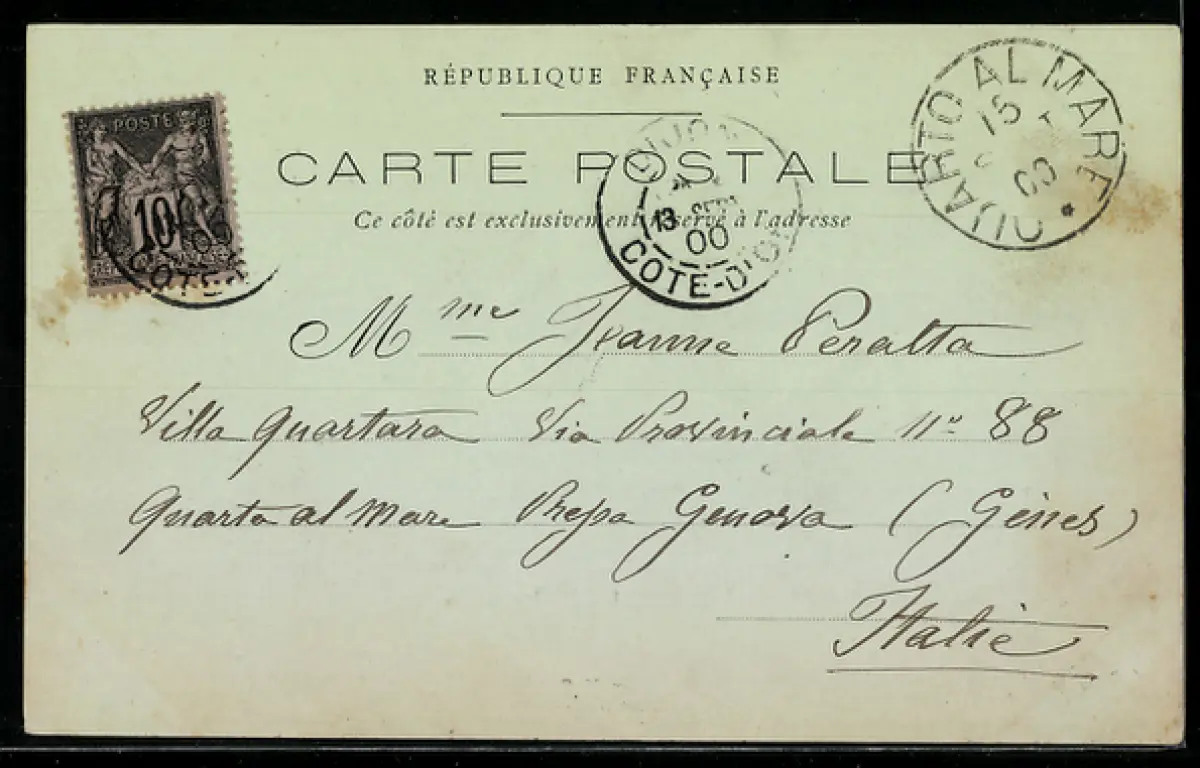 RÉPUBLIQUE FRANÇAISE
CARTE POSTALE
Ce côté est exclusivement réservé à l'adresse
POSTE
10
00
COTE-D
DIJON
13 SEPT
00
COTE-D'OR
QUARTO AL MARE *
15
00
Mme Jeanne Peralta
Villa Quartara Via Provinciale No 88
Quarto al Mare Genova (Gênes)
Italie